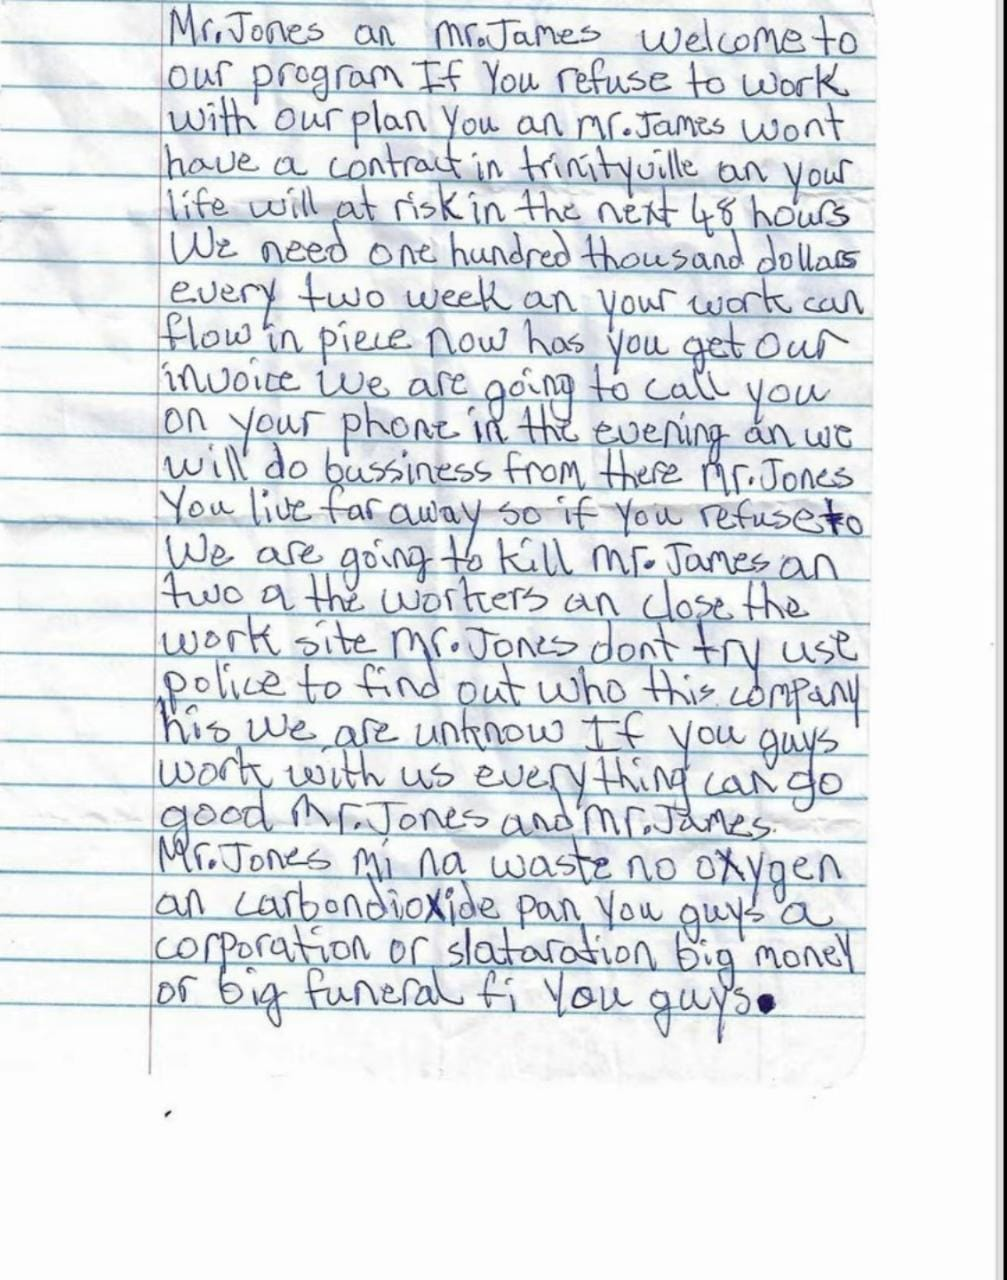 Mr. Jones an mr. James welcome to
our program If You refuse to work
with our plan You an mr. James wont
have a contract in trinityville an your
life will at risk in the next 48 hours
We need one hundred thousand dollars
every two week an your work can
flow in piece now has you get our
invoice we are going to call you
on your phone in the evening an we
will do bussiness from there Mr. Jones
You live far away so if You refuse to
We are going to kill Mr. James an
two a the workers an close the
work site Mr. Jones dont try use
police to find out who this company
his we are unknow If you guys
work with us everything can go
good Mr. Jones and Mr. James.
Mr. Jones mi na waste no oxygen
an carbondioxide pan You guys a
corporation or slataration big money
or big funeral fi You guys.